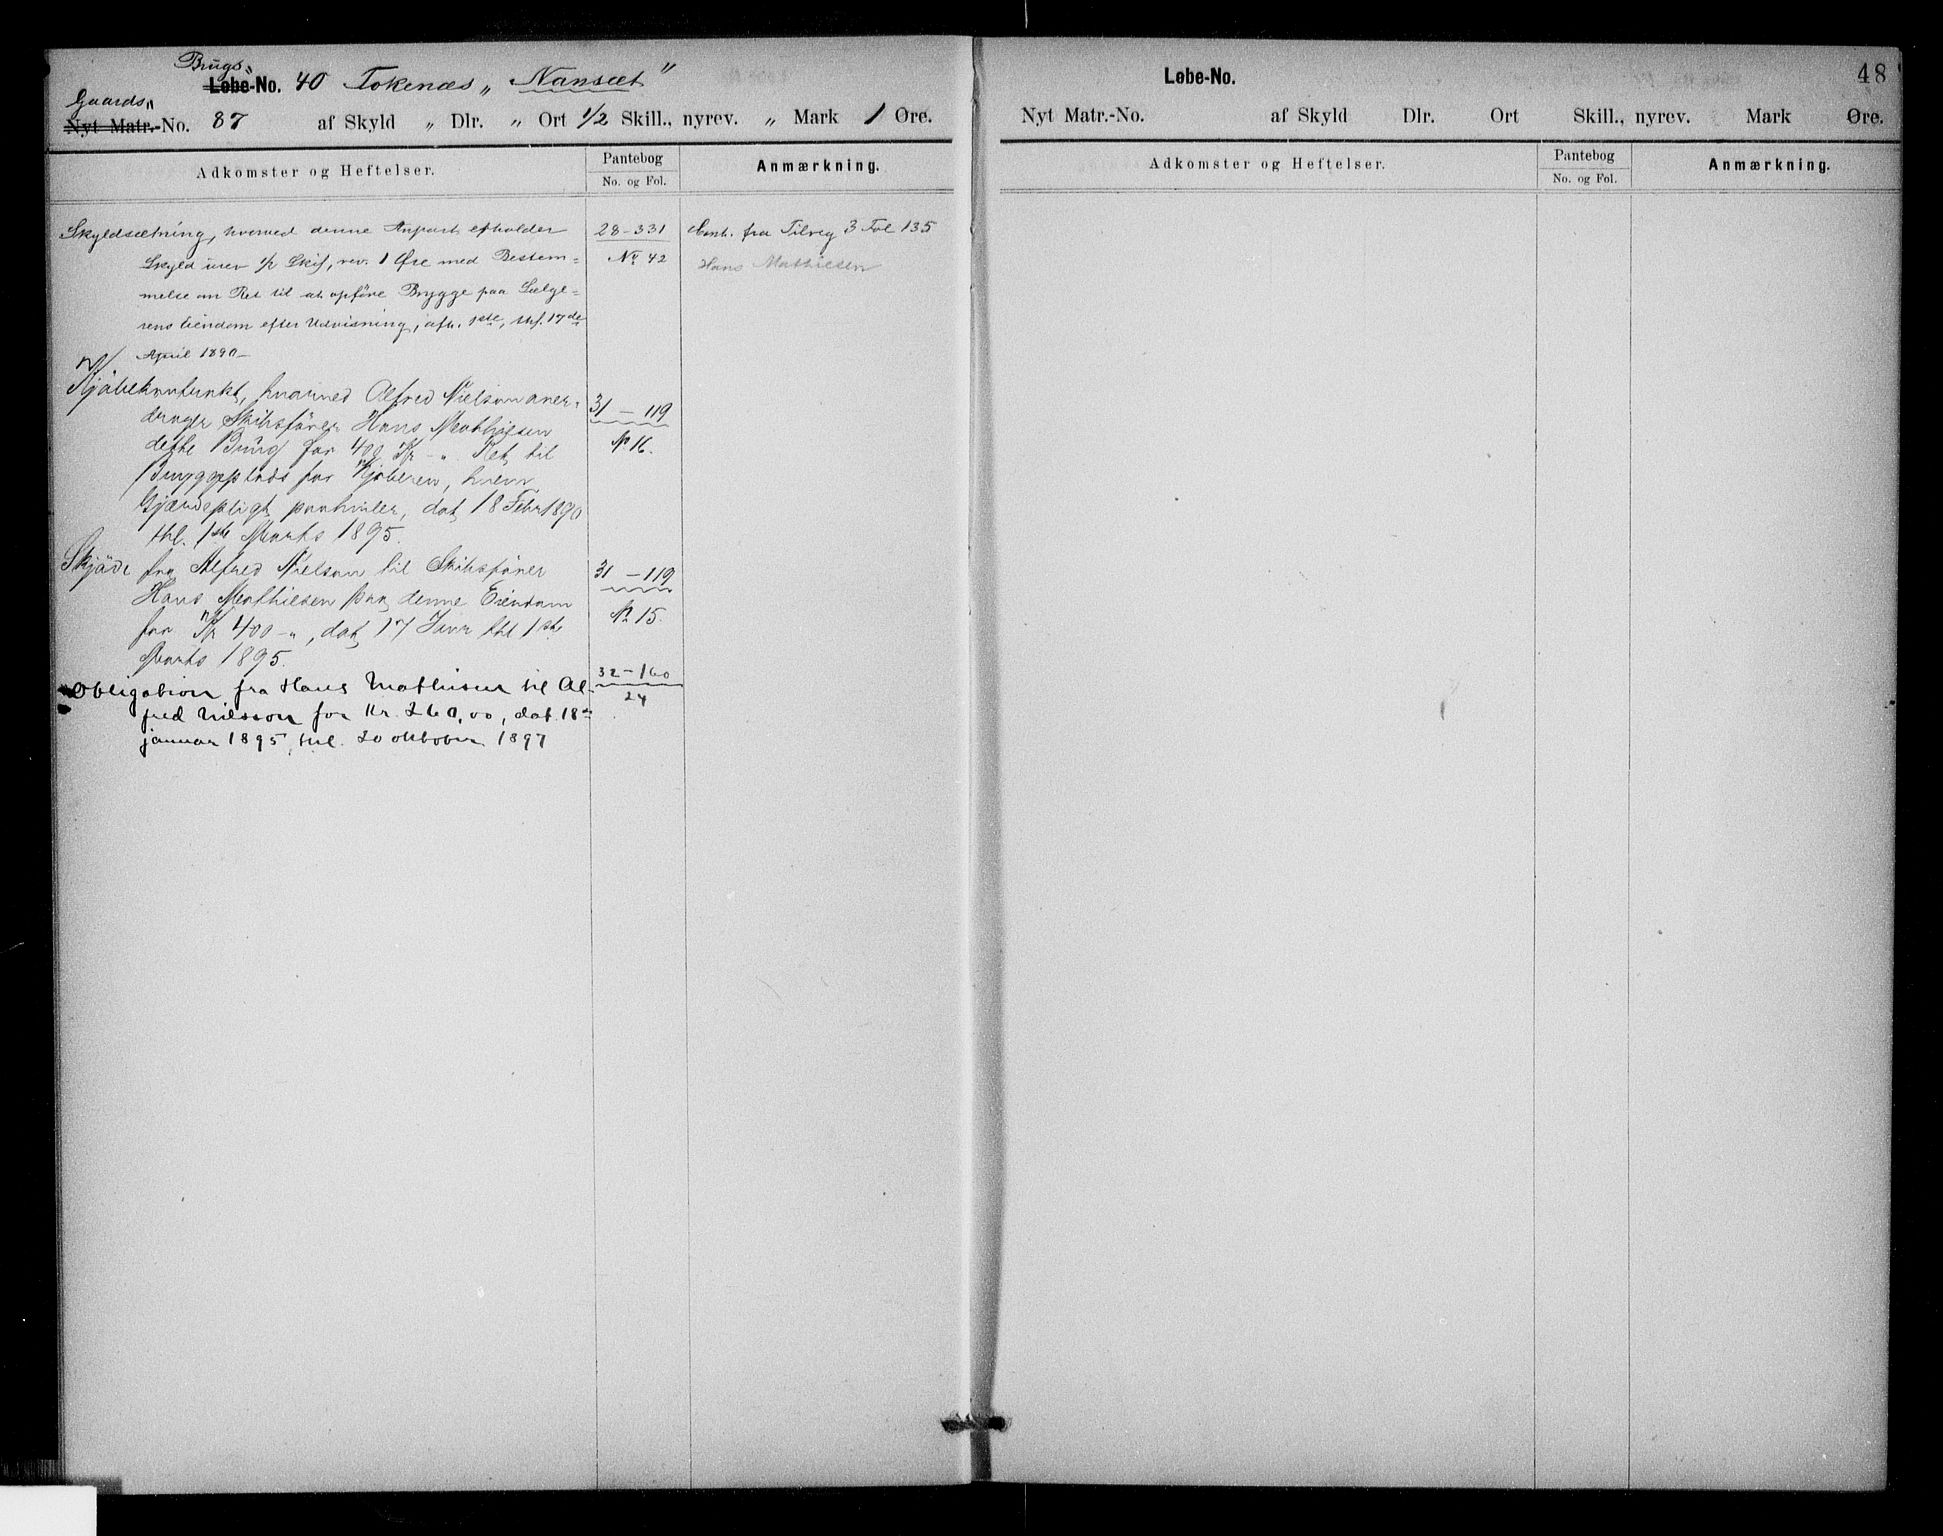 Brugs„
Løbe-No. 40 Tokenæs „Nansæt"
Gaards„
Nyt Matr.-No. 87 af Skyld „ Dlr. „ Ort 1/2 Skill., nyrev. „ Mark 1 Øre.
Adkomster og Heftelser. Pantebog Anmærkning.
No. og Fol.
Skyldsætning, hvorved denne Anpart efholder 28-331 Conh. fra Tilreg 3 Fol 135
Skyld urev 1/2 Skil, rev. 1 Øre med Bestem= No 42 Hans Mathiesen
melse om Ret til at opføre Brygge paa Sælge-
rens Eiendom efter Udvisning, afh. 1ste, thl. 17de
April 1890—
Kjøbekontrakt, hvorved Alfred Nielson over- 31 — 119
drager Skibsfører Hans Mathiesen
dette Brug for 400 Kr - „ Ret til No 16.
Bryggeplads for Kjøberen, hvem
Gjærdepligt paahviler, dat 18 Febr 1890
thl. 1ste Marts 1895.
Skjøde fra Alfred Nielson til Skibsfører 31 — 119
Hans Mathiesen paa denne Eiendom
for Kr 400 - „, dat 17 Janr thl 1ste No 15.
Marts 1895.
Obligation fra Hans Mathisen til Al- 32 — 160
fred Nilsson for Kr. 260,00, dat. 18de 24
januar 1895, thl. 20 oktober 1897
48
Løbe-No.
Nyt Matr.-No. af Skyld Dlr. Ort Skill., nyrev. Mark Øre.
Adkomster og Heftelser. Pantebog Anmærkning.
No. og Fol.